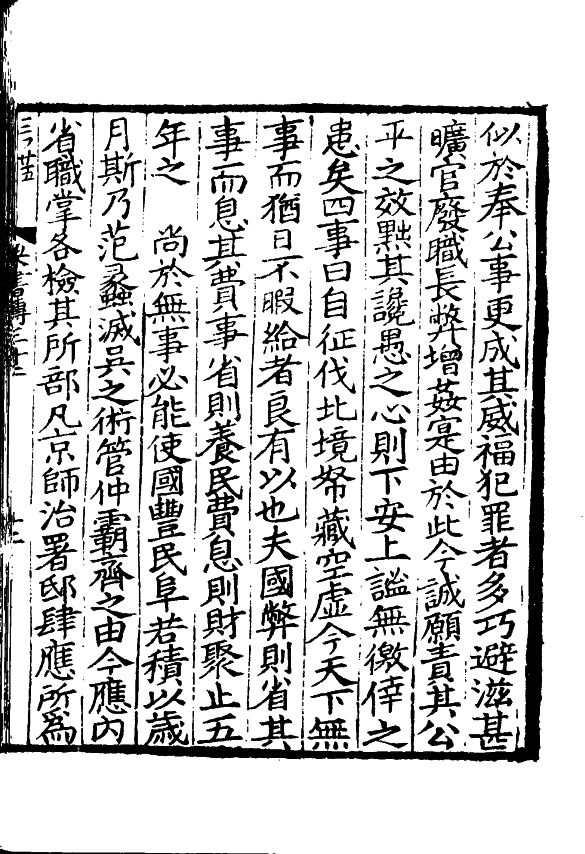 似於奉公事更成其威福犯罪者多巧避滋甚
曠官廢職長弊增姦寔由於此今誠願責其公
平之效黜其讒愚之心則下安上謐無徼倖之
患矣四事曰自征伐北境帑藏空虛今天下無
事而猶日不暇給者良有以也夫國弊則省其
事而息其費事省則養民費息則財聚止五
年之 尚於無事必能使國豐民阜若積以歲
月斯乃范蠡滅吳之術管仲霸齊之由今應內
省職掌各檢其所部凡京師治署邸肆應所爲